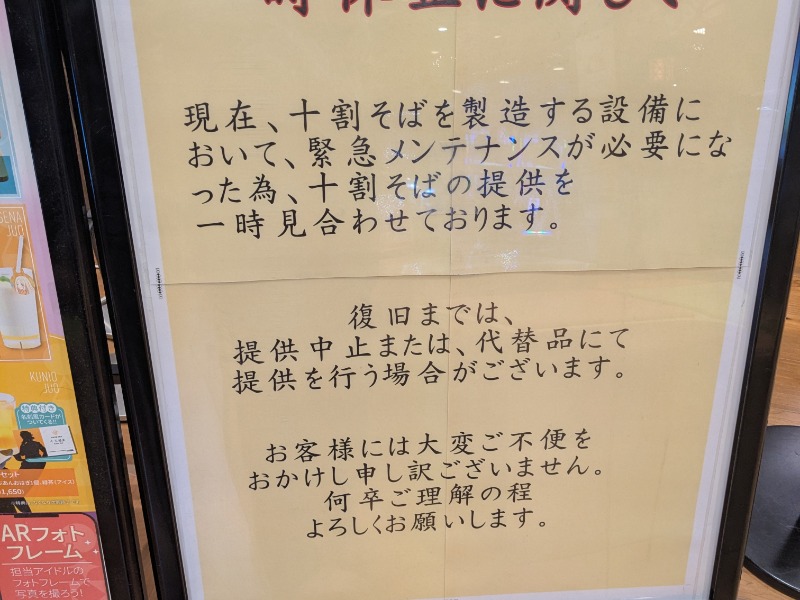 時休止に関して
現在、十割そばを製造する設備に
おいて、緊急メンテナンスが必要にな
った為、十割そばの提供を
一時見合わせております。
復旧までは、
提供中止または、代替品にて
提供を行う場合がございます。
お客様には大変ご不便を
おかけし申し訳ございません。
何卒ご理解の程
よろしくお願いします。
GENA
JUO
KUNIO
JUO
特典付き
名刺風カードが
ついてくる!!
セット
¥1,650)
ARフォト
フレーム
担当アイドルの
フォトフレームで
写真を撮ろう!